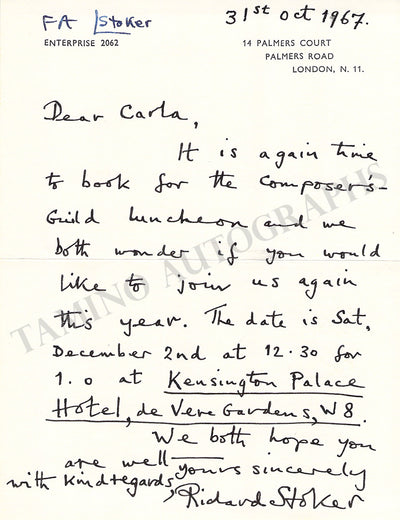 FA Stoker
31st Oct 1967.
ENTERPRISE 2062
14 PALMERS COURT
PALMERS ROAD
LONDON, N. 11.
Dear Carla,
It is again time
to book for the Composer's-
Guild luncheon and we
both wonder if you would
like to join us again
this year. The date is Sat,
December 2nd at 12.30 for
1.0 at Kensington Palace
Hotel, de Vere Gardens, W8.
We both hope you
are well
yours sincerely
with kind regards,
Richard Stoker
TAMINO AUTOGRAPHS